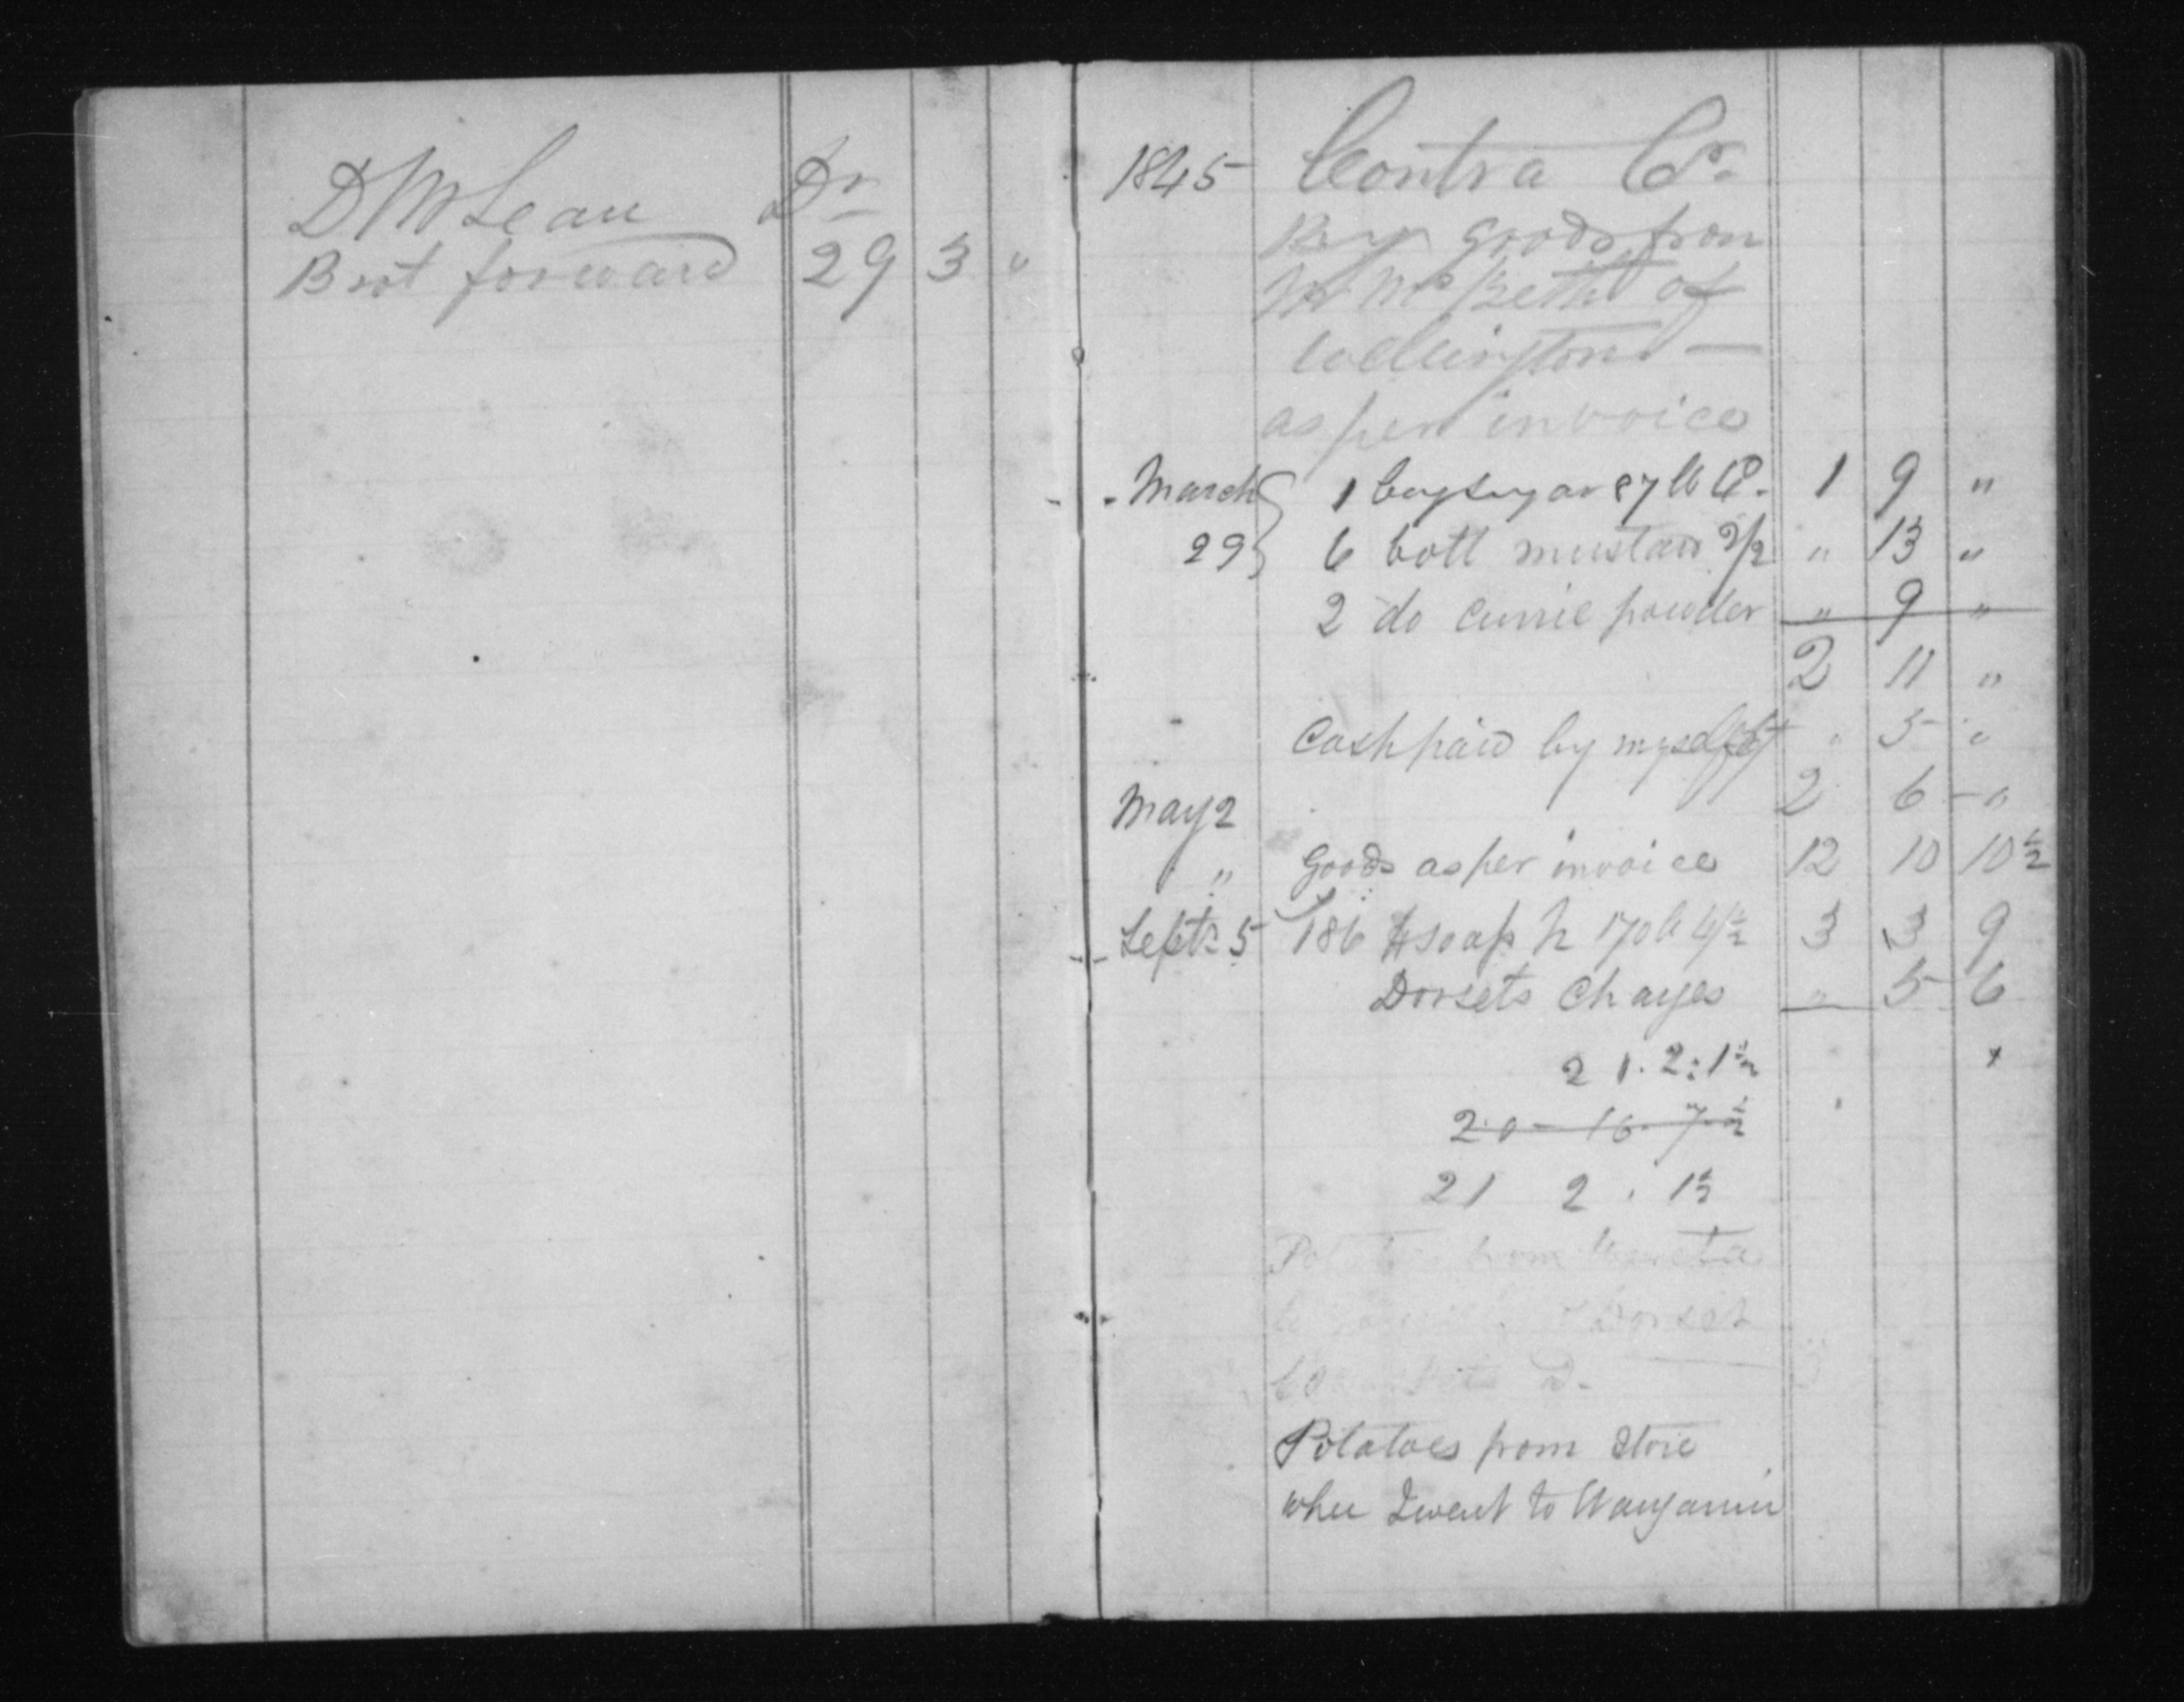 D McLean Dr
Brot forward 29 3 "
1845 Contra Cr.
By goods from
Mr McBeth of
Wellington —
as per invoice
March 1 bag sugar 87 lb 1 9 "
29 6 bott mustard 2/2 " 13 "
2 do currie powder " 9 "
2 11 "
Cash paid by myself " 5 "
2 6 "
May 2
" Goods as per invoice 12 10 10½
Sept 5 186 soap 170 lb 4½ 3 3 9
Dorsets Charges " 5 6
21. 2: 1½ x
20 - 16 - 7½
21 2 . 1½
from
Dorset
Potatoes from Store
when I went to Wanganui